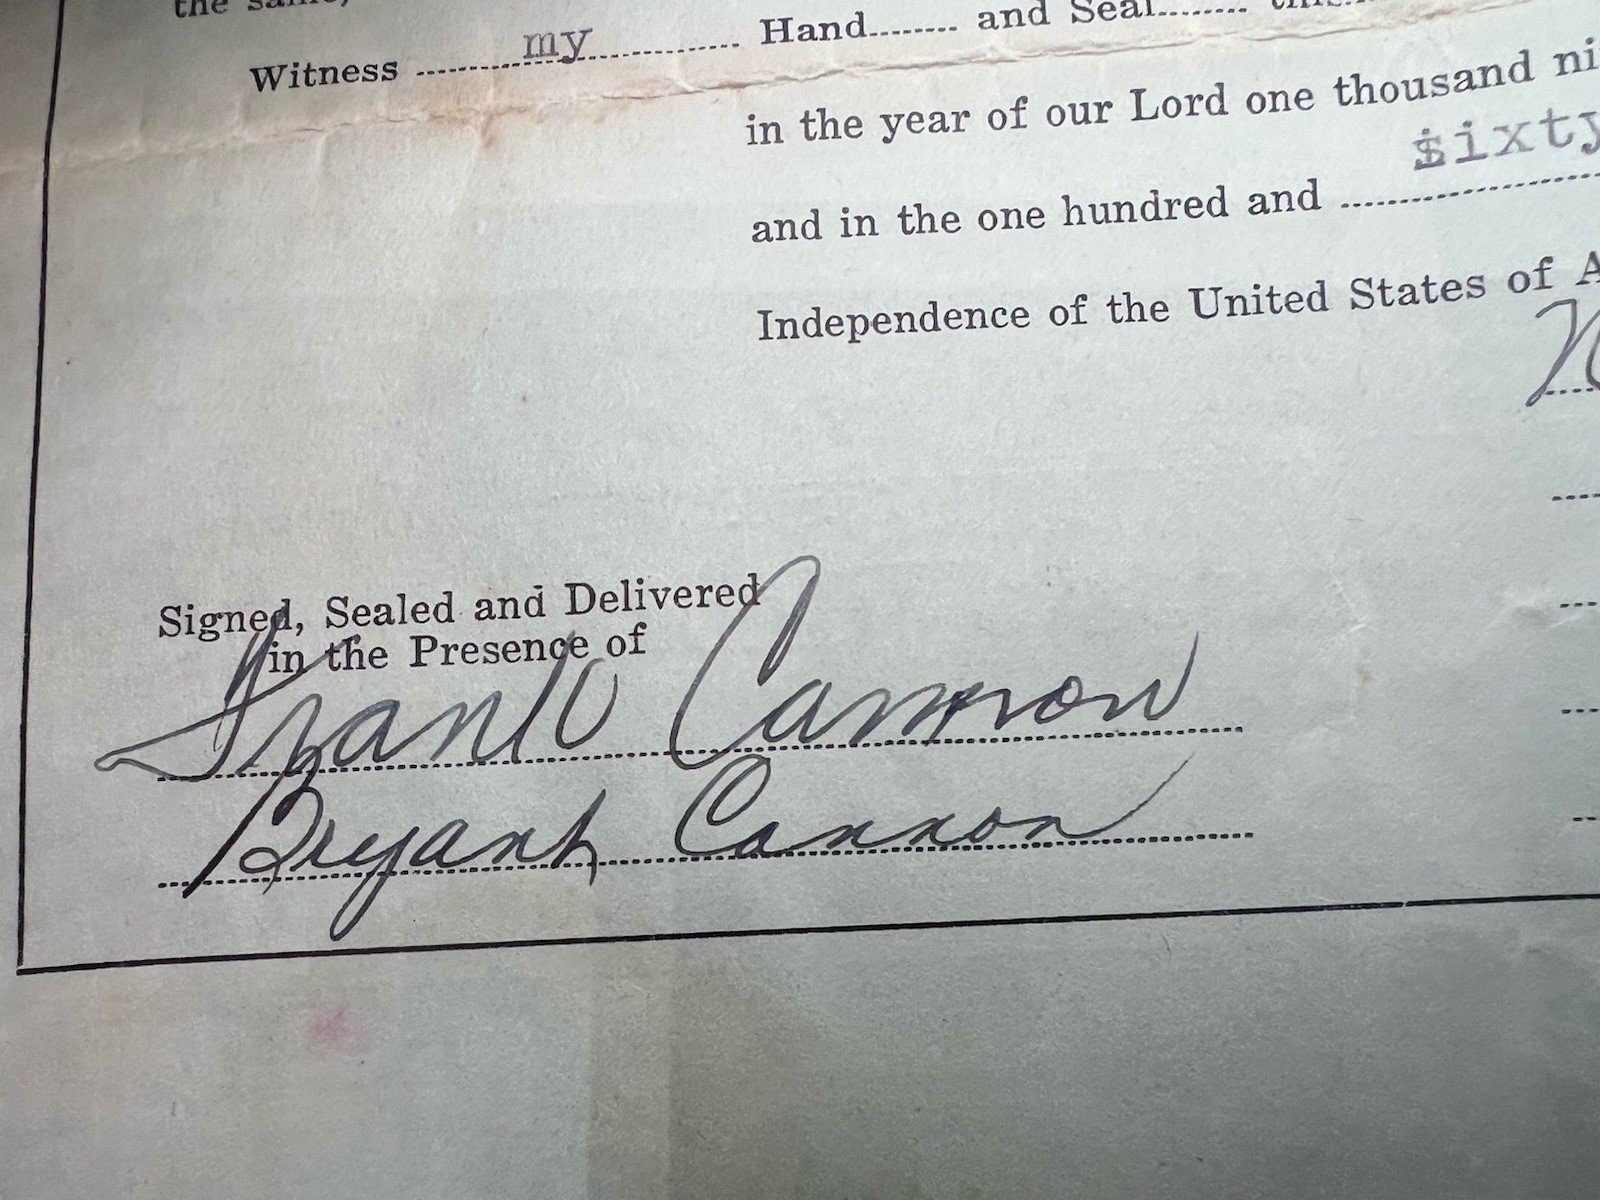 the same,
Witness ........ my ........ Hand........ and Seal........
in the year of our Lord one thousand ni
sixty
and in the one hundred and ........
Independence of the United States of A
Signed, Sealed and Delivered
in the Presence of
Frank Cannon
Bryant Cannon